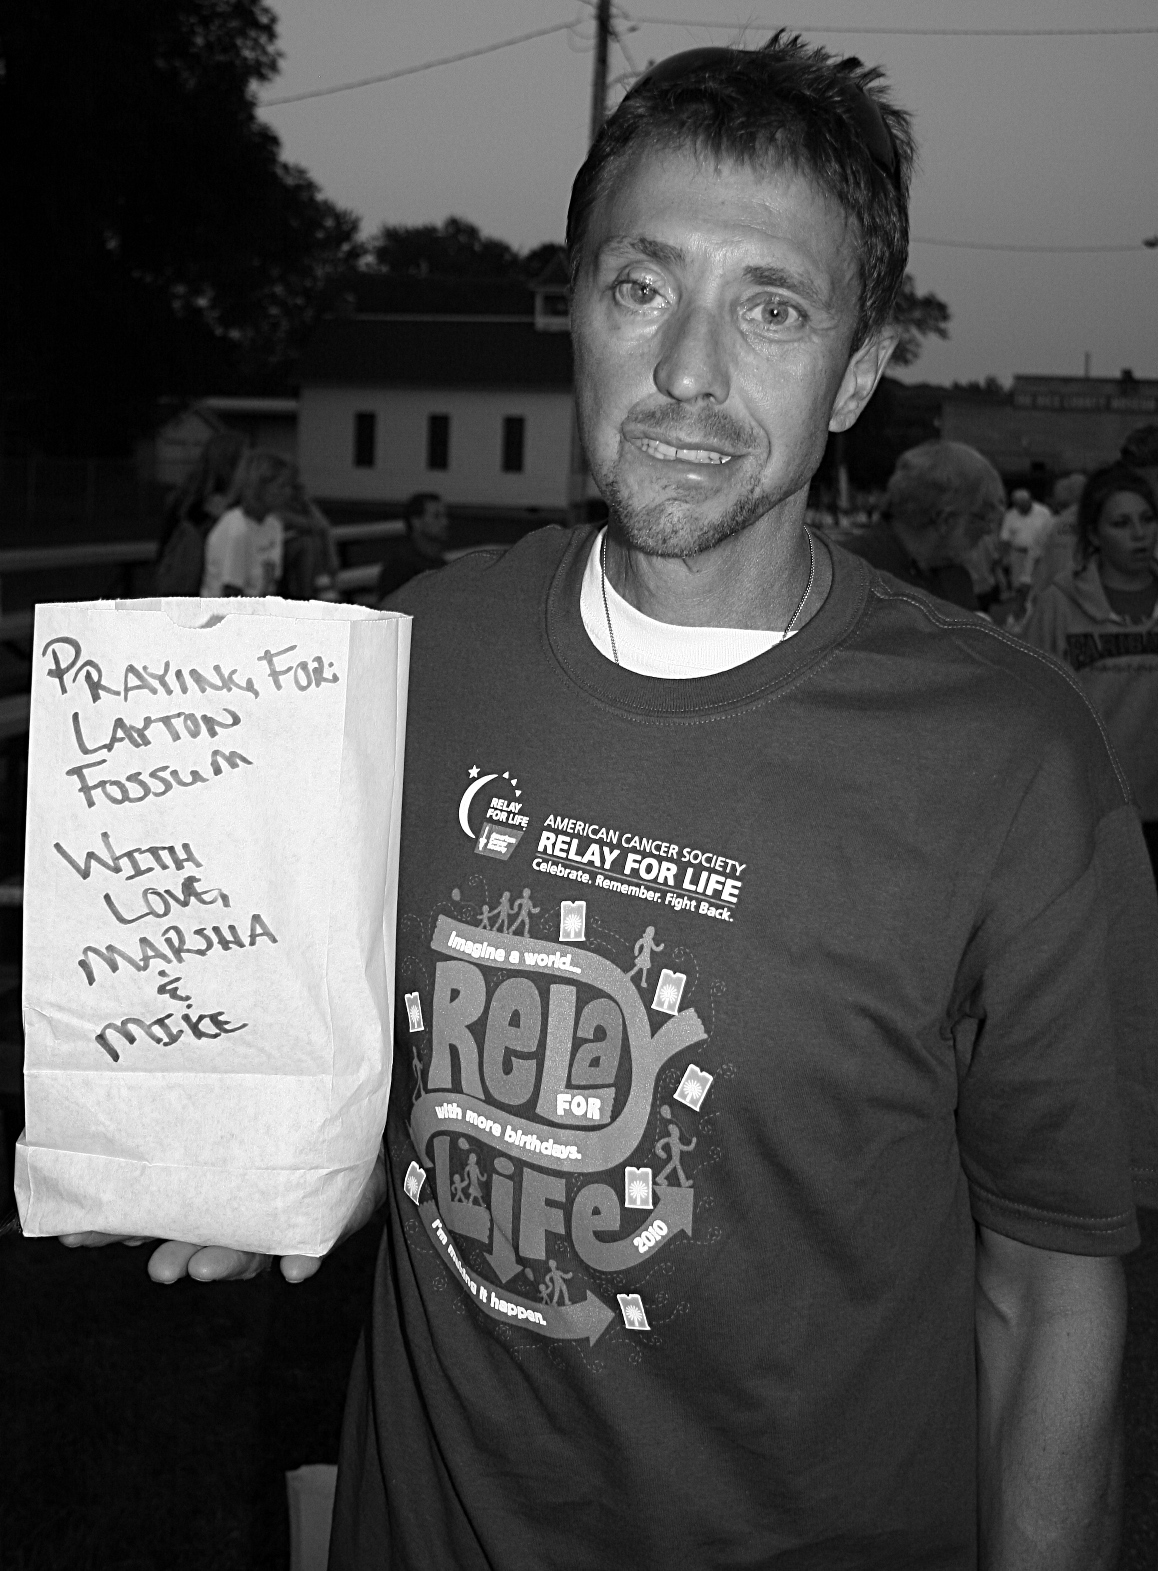 PRAYING FOR:
LAYTON
FOSSUM
WITH
LOVE,
MARSHA
&
MIKE
RELAY
FOR LIFE
AMERICAN CANCER SOCIETY
RELAY FOR LIFE
Celebrate. Remember. Fight Back.
imagine a world...
RELAY
FOR
with more birthdays.
LiFe
2010
I'm making it happen.